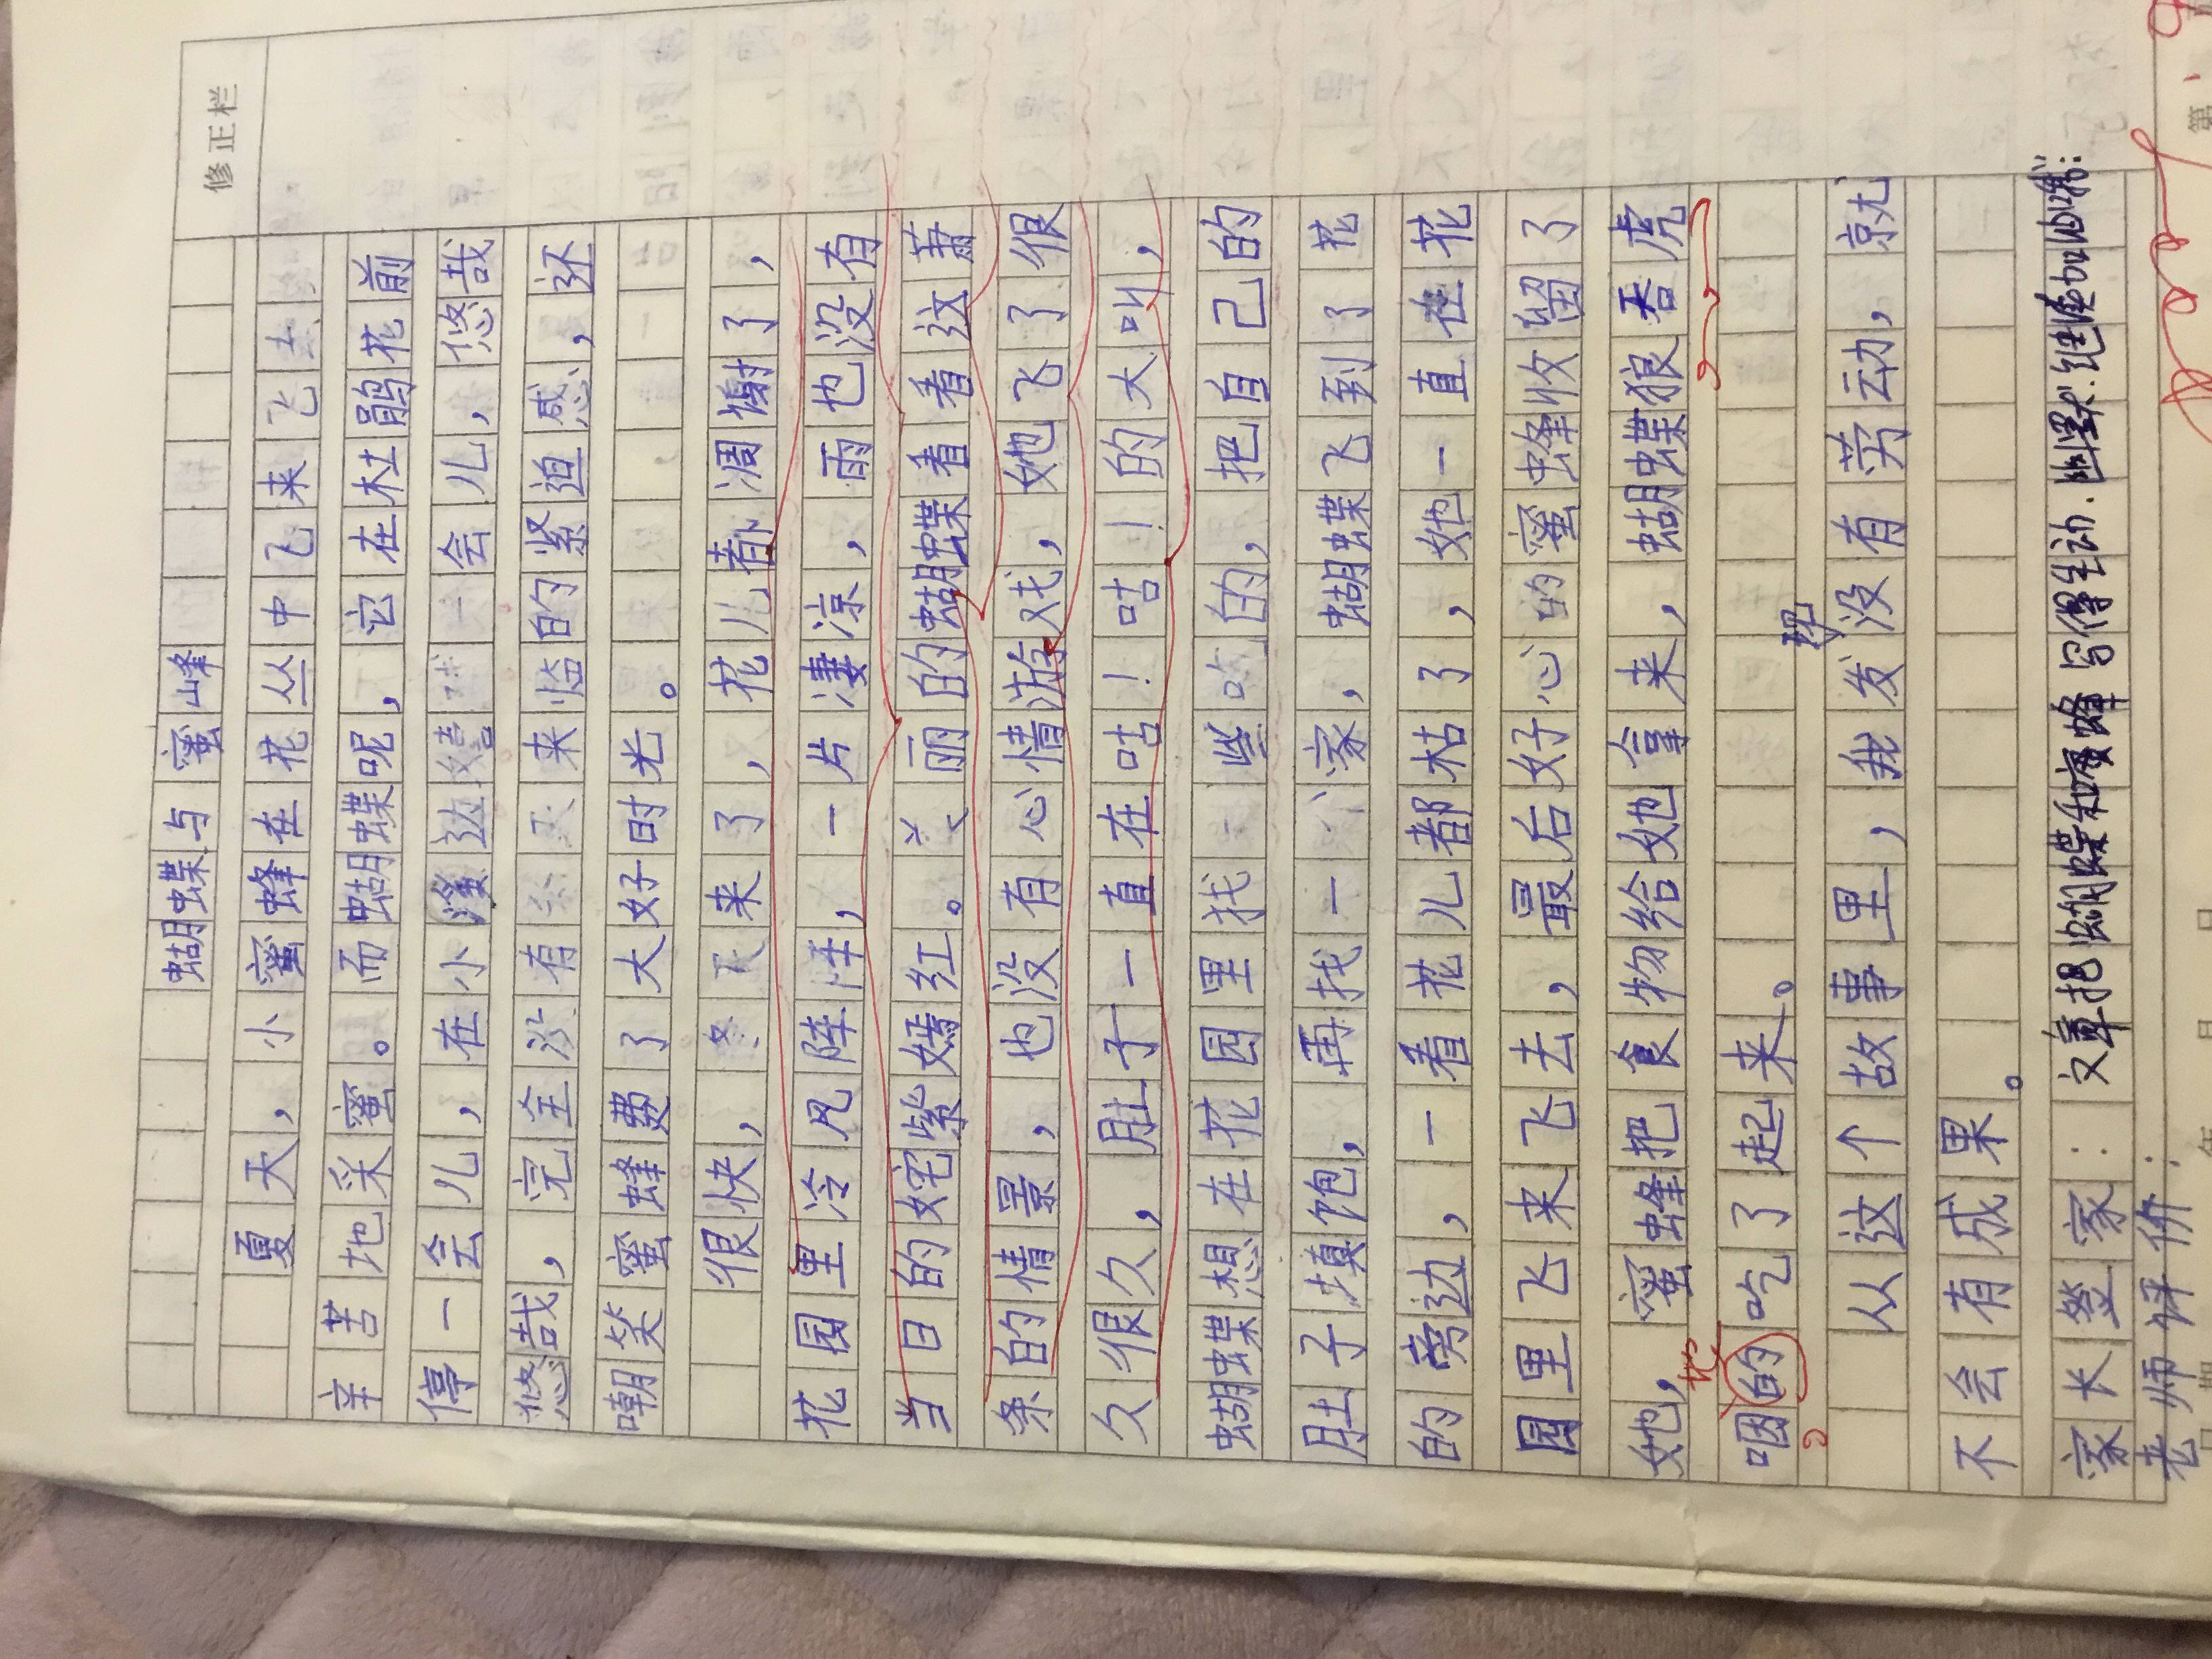 修正栏
蝴蝶与蜜峰
夏天，小蜜蜂在花丛中飞来飞去
辛苦地采蜜。而蝴蝶呢，它在杜鹃花前
停一会儿，在小溪边嬉戏一会儿，悠哉
悠哉，完全没有冬天来临的紧迫感，还
嘲笑蜜蜂费了大好时光。
很快，冬天来了，花儿都凋谢了，
花园里冷风阵阵，一片凄凉，雨也没有
当日的姹紫嫣红。美丽的蝴蝶看看这萧
条的情景，也没有心情游戏，她飞了很
久很久，肚子一直在咕！咕！的大叫，
蝴蝶想在花园里找一些吃的，把自己的
肚子填饱，再找一个家，蝴蝶飞到了花
的旁边，一看花儿都枯了，她一直在花
园里飞来飞去，最后好心的蜜蜂收留了
她，蜜蜂把食物给她拿来，蝴蝶狼吞虎
咽的吃了起来。
地
从这个故事里，我发现没有劳动，就
不会有成果。
家长签字：文章把蝴蝶和蜜蜂写得生动.幽默.继续加油哦:
老师评价：
good